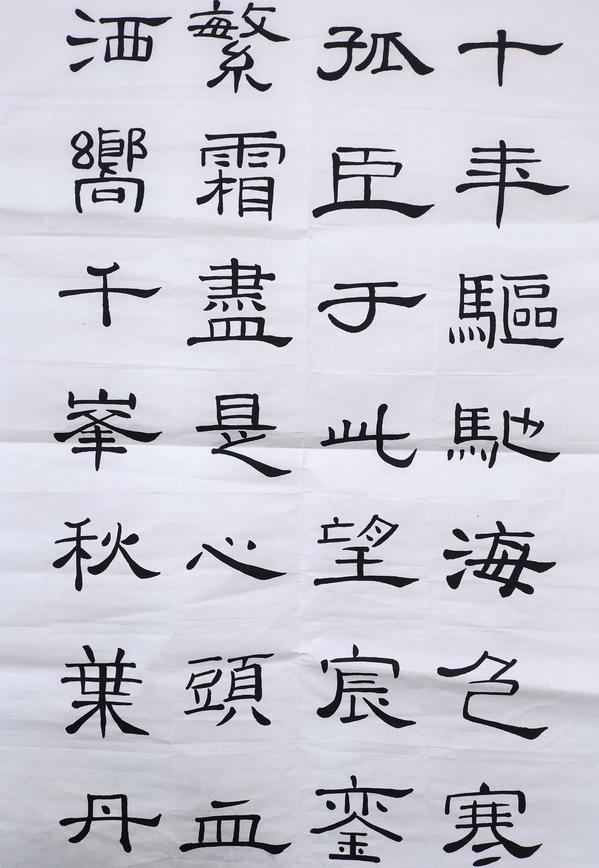 十年驅馳海色寒
孤臣于此望宸銮
繁霜盡是心頭血
洒嚮千峯秋葉丹